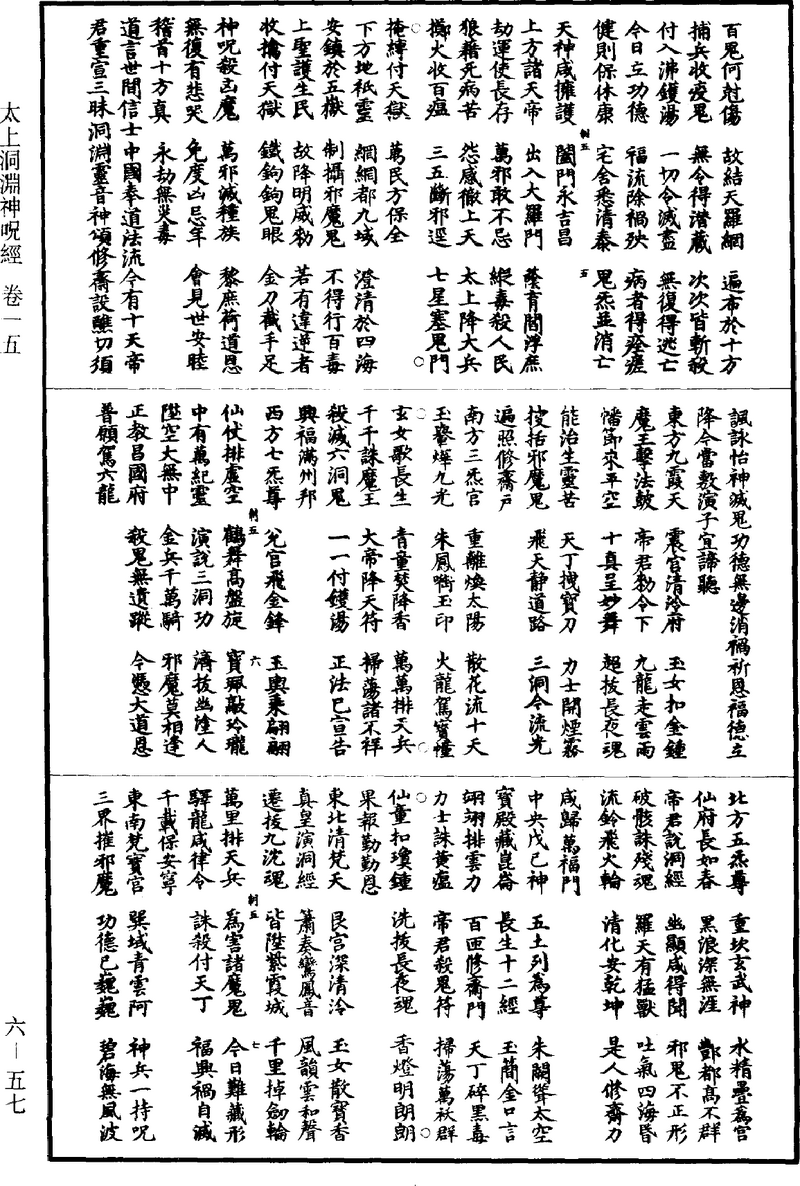 太上洞淵神呪經 卷一五
百鬼何尅傷 故結天羅網 遍布於十方
捕兵收疫鬼 無令得潛藏 次次皆斬殺
付入沸鑊湯 一切令滅盡 無復得逃亡
今日立功德 福流除禍殃 病者得痊瘥
健則保休康 宅舍悉清泰 鬼炁並消亡
天神咸擁護 闔門永吉昌
上方諸天帝 出入大羅門 蔭育閻浮庶
劫運使長存 萬邪敢不忌 縱毒殺人民
狼藉死病苦 怨感徹上天 太上降大兵
擲火收百瘟 三五斷邪逕 七星塞鬼門
掩縛付天獄 萬民方保全
下方地祇靈 網網都九域 澄清於四海
安鎮於五嶽 制攝邪魔鬼 不得行百毒
上聖護生民 故降明威勑 若有違逆者
收擒付天獄 鐵鉤鉤鬼眼 金刀截手足
神呪殺凶魔 萬邪滅種族 黎庶荷道恩
無復有悲哭 免度凶忌年 會見世安睦
稽首十方真 永劫無災毒
道言世間信士中國奉道法流今有十天帝
君重宣三昧洞淵靈音神頌修齋設醮切須
諷詠怡神滅鬼功德無邊消禍祈恩福德立
降今當敷演子宜諦聽
東方九霞天 震宮清泠府 玉女扣金鍾
魔王擊法鼓 帝君勑令下 九龍走雲雨
幡節來平空 十真呈妙舞 超拔長夜魂
能治生靈苦 天丁拽寶刀 力士開煙霧
搜括邪魔鬼 飛天靜道路 三洞今流光
遍照修齋戶
南方三炁宮 重離煥太陽 散花流十天
玉礬燁九光 朱鳳啣玉印 火龍駕寶幢
玄女歌長生 青童焚降香 萬萬排天兵
千千誅魔王 大帝降天符 掃蕩諸不祥
殺滅六洞鬼 一一付鑊湯 正法已宣告
興福滿州邦
西方七炁尊 兌宮飛金鋒 玉輿乘翩翩
仙仗排虛空 鶴舞高盤旋 寶珮敲玲瓏
中有萬紀靈 演說三洞功 濟拔幽塗人
陞空大無中 金兵千萬騎 邪魔莫相逢
正教昌國府 殺鬼無遺蹤 今憑大道恩
普願駕六龍
北方五炁尊 重坎玄武神 水精疊為宮
仙府長如春 黑浪深無涯 酆都高不群
帝君說洞經 幽顯咸得聞 邪鬼不正形
破骸誅殘魂 羅天有猛獸 吐氣四海昏
流鈴飛火輪 清化安乾坤 是人修齋力
咸歸萬福門
中央戊己神 五土列為尊 朱闕聳太空
寶殿藏崑崙 長生十二經 玉簡金口言
翊翊排雲力 百匝修齋門 天丁碎黑毒
力士誅黃瘟 帝君殺鬼符 掃蕩萬袄群
仙童扣瓊鍾 洗拔長夜魂 香燈明朗朗
果報勤勤恩
東北清梵天 艮宮深清泠 玉女散寶香
真皇演洞經 簫奏鸞鳳音 風韻雲和聲
遷拔九沈魂 皆陞紫霞城 千里掉劍輪
萬里排天兵 為害諸魔鬼 今日難藏形
驛龍咸律令 誅殺付天丁 福興禍自滅
千載保安寧
東南梵寶宮 巽域青雲阿 神兵一持呪
三界摧邪魔 功德已巍巍 碧海無風波
六－五七